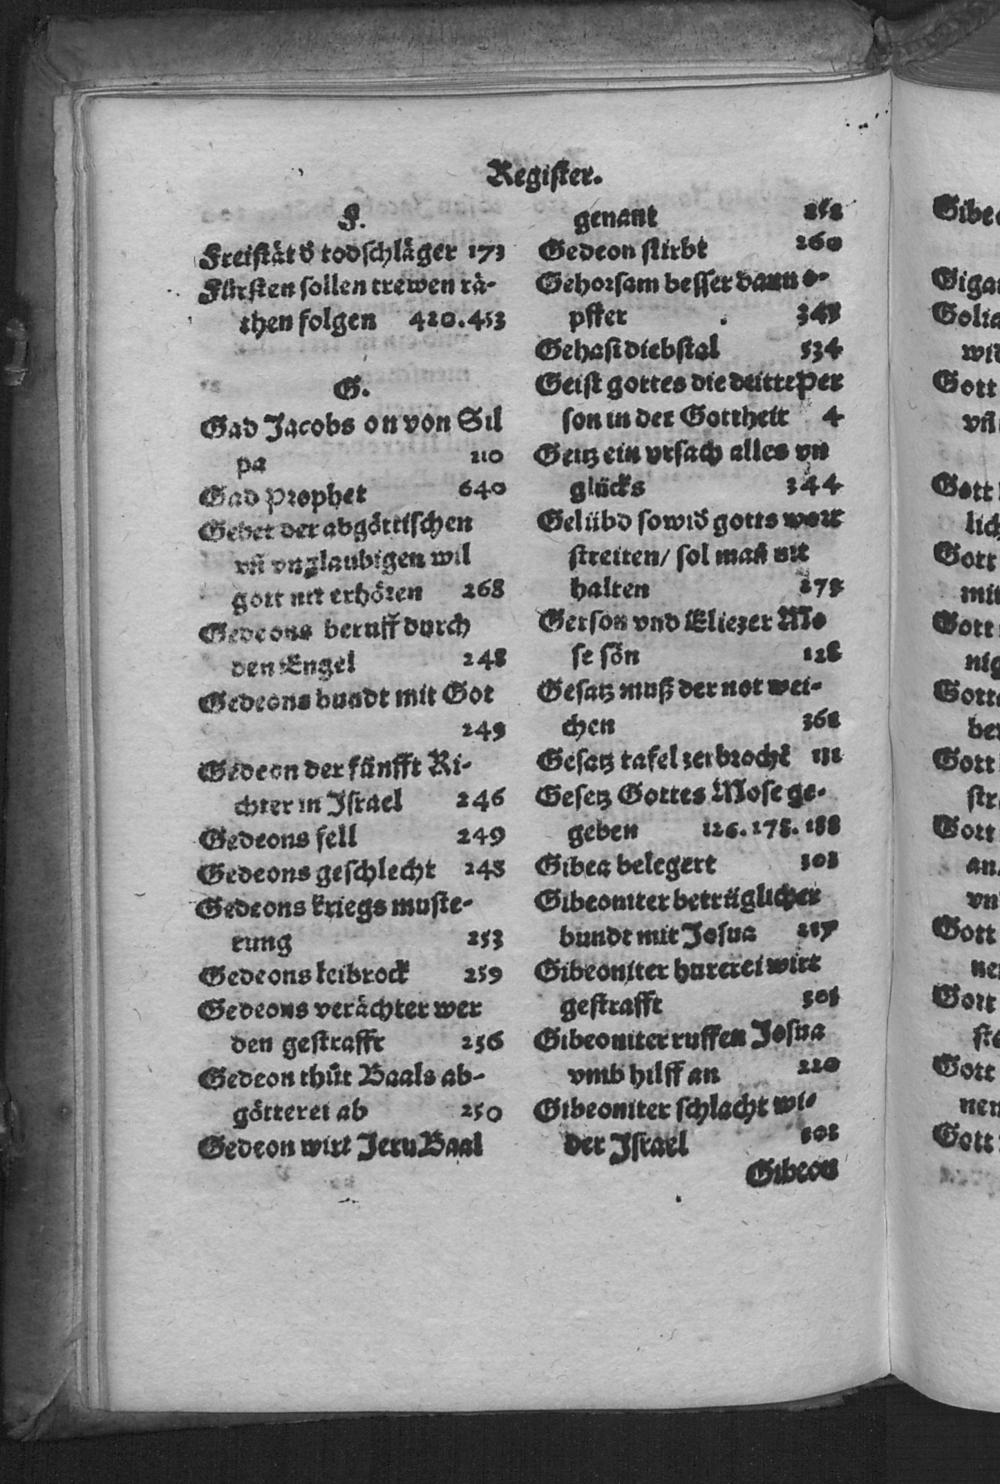 Register.
F.
Freistät d̕ todschläger 173
Fürsten sollen trewen rä-
then folgen 420.453
G.
Gad Jacobs on von Sil
pa 210
Gad prophet 640
Gebet der abgöttischen
vñ vnglaubigen wil
gott nit erhören 268
Gedeons beruff durch
den Engel 248
Gedeons bundt mit Got
249
Gedeon der fünfft Ri-
chter in Israel 246
Gedeons fell 249
Gedeons geschlecht 248
Gedeons kriegs muste-
rung 253
Gedeons leibrock 259
Gedeons verächter wer
den gestrafft 256
Gedeon thůt Baals ab-
götterei ab 250
Gedeon wirt JeruBaal
genant
Gedeon stirbt 260
Gehorsam besser dann o-
pffer
Gehasi diebstal 534
Geist gottes die dritte per
son in der Gottheit 4
Geitz ein vrsach alles vn
glücks 344
Gelübd so wid̕ gotts wort
streiten/ sol mañ nit
halten
Gerson vnd Eliezer Mo
se sön 128
Gesatz muß der not wei-
chen
Gesatz tafel zerbrochē
Gesetz Gottes Mose ge-
geben 126.178.188
Gibea belegert
Gibeoniter betrüglicher
bundt mit Josua 217
Gibeoniter hurerei wirt
gestrafft
Gibeoniter ruffen Josua
vmb hilff an 220
Gibeoniter schlacht wi-
der Israel
Gibeon
Gott
Gott
Gott
Gott
Gott
Gott
Gott
Gott
Gott